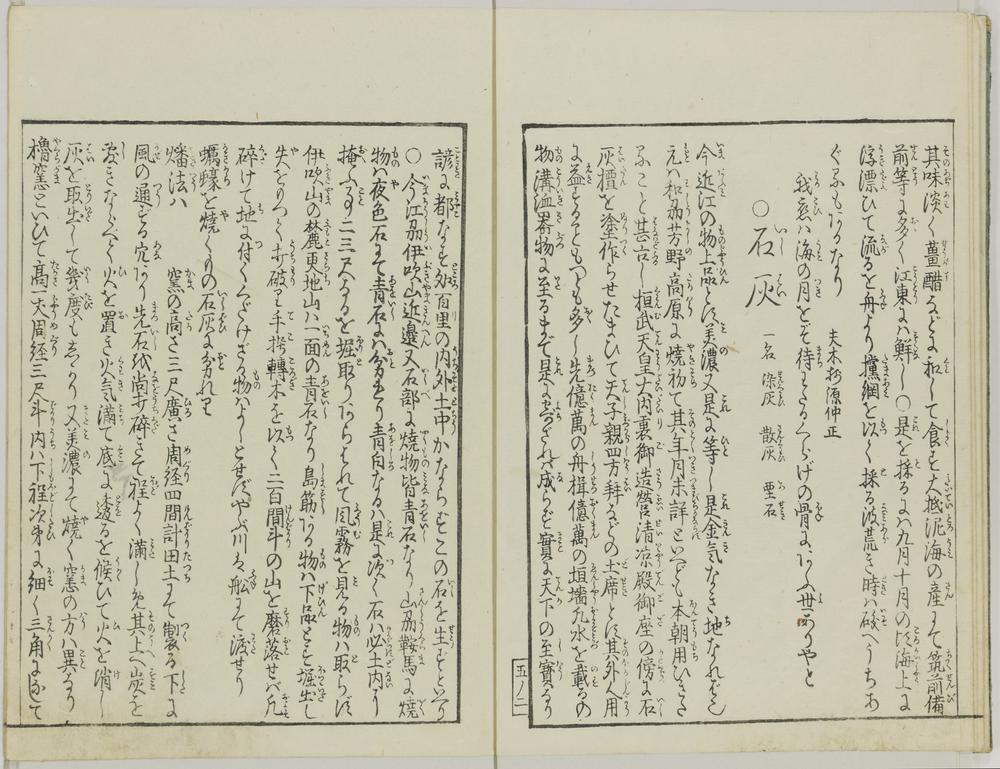 其味淡く薑醋などに和して食す大抵泥海の産にて筑前備
前等に多く江東には鮮し〇是を採るには九月十月の頃海上に
浮漂ひて流るを舟より攩網を以て採る波荒き時は磯へうちあ
ぐるもあるなり
夫木抄源仲正
我恋は海の月をぞ待わたるくらげの骨にあふ世ありやと
〇石灰 一名 染灰 散灰 堊石
今近江の物上品とす美濃又是に等し是金気なき地なればなり
元は和州芳野高原に焼初て其年月未詳といへども本朝用ひきた
ること甚古し桓武天皇大内裏御造営清涼殿御座の傍に石
灰檀を塗作らせたまひて天子親四方拝などの土席とす其外人用
に益することもつとも多し先億萬の舟楫億萬の垣墻水を載るの
物溝洫器物に至るまで是にあらざれば成らず實に天下の至寶なり
五ノ二
諺に都なる処百里の内外土中かならずこの石を生ずといへり
〇今江州伊吹山近邉又石部に焼物皆青石なり山州鞍馬に焼
物は夜色石にて青石には劣れり青白なるは是に次く石は必土内に
掩ふ事二三尺なるを堀取りあらはれて風霧を見る物は取らず
伊吹山の麓更地山は一面の青石なり島筋ある物は下品とす堀出し
矢をもつて打破り千挺轉木を以て二百間斗の山を磨落せば凡
碎けて地に付くくだけざる物はよしとせずやぶ川を舩にて渡せり
蠣蠔を焼くもの石灰に劣れり
燔法は 窯の高さ三尺廣さ周径四間計田土にて製る下に
風の通ずる穴あり先石紙尚打碎きて程よく満しめ其上へ炭を
夌きならべて火を置き火気満て底に透るを候ひて火を消し
灰を取出して幾度もしかり又美濃にて焼く窯の方は異なり
櫓窯といひて高一丈周経三尺斗内は下程次第に細く三角になして